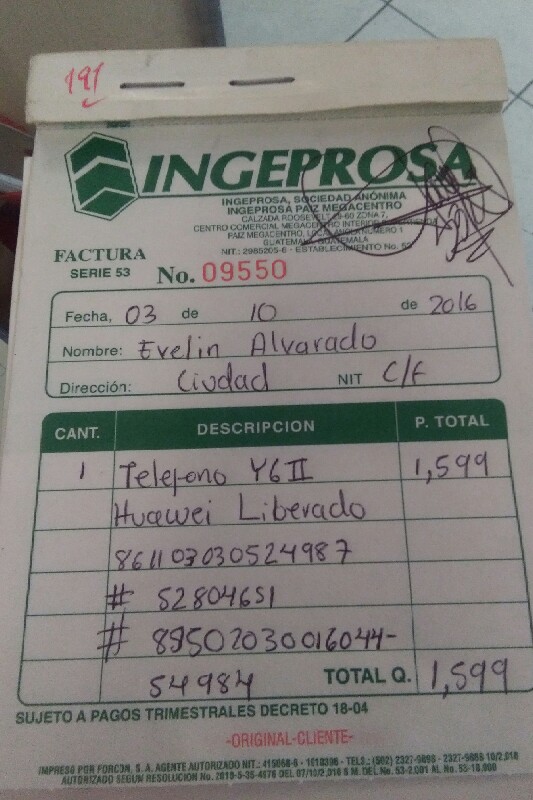 191
INGEPROSA
INGEPROSA, SOCIEDAD ANÓNIMA
INGEPROSA PAIZ MEGACENTRO
CALZADA ROOSEVELT 29-60 ZONA 7,
CENTRO COMERCIAL MEGACENTRO INTERIOR
PAIZ MEGACENTRO, LOCAL NUMERO 1
GUATEMALA, GUATEMALA
NIT.: 2985205-6 - ESTABLECIMIENTO No. 53
FACTURA
SERIE 53
No. 09550
Fecha, 03 de 10 de 2016
Nombre: Evelin Alvarado
Dirección: Ciudad NIT C/F
CANT. DESCRIPCION P. TOTAL
1 Telefono Y6II 1,599
Huawei Liberado
861103030524987
# 52804651
# 89502030016044-
54984 TOTAL Q. 1,599
SUJETO A PAGOS TRIMESTRALES DECRETO 18-04
-ORIGINAL-CLIENTE-
IMPRESO POR FORCON, S. A. AGENTE AUTORIZADO NIT.:
AUTORIZADO SEGUN RESOLUCION No.